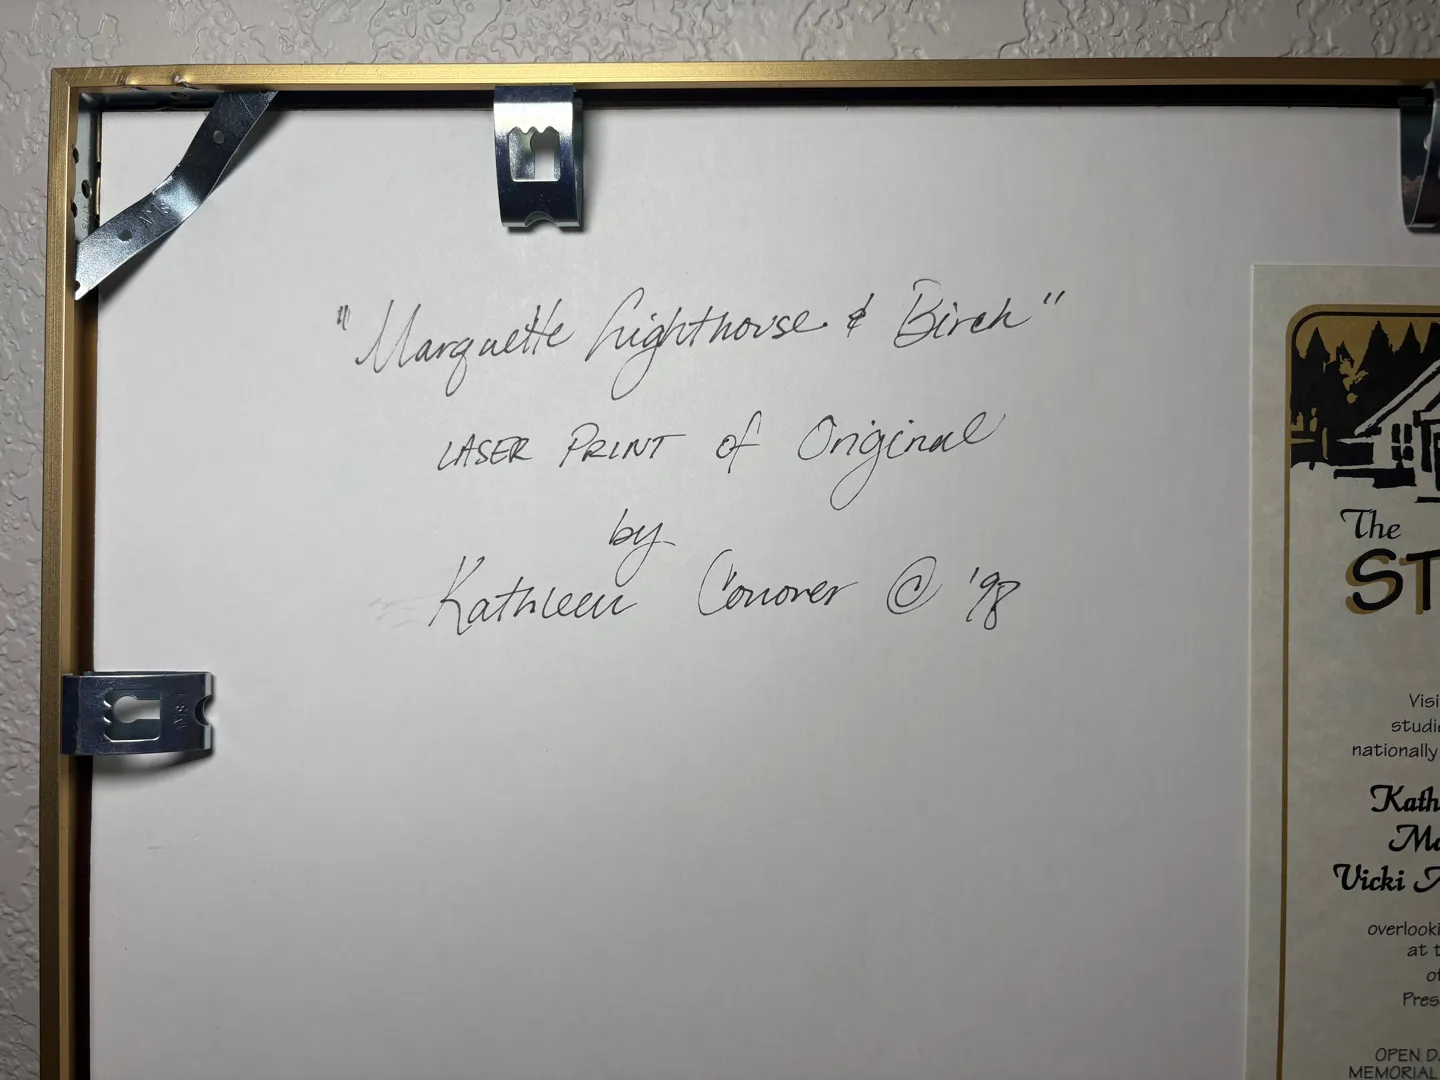 "Marquette Lighthouse & Birch"
LASER PRINT of Original
by
Kathleen Conover © '98
The
ST
Visi
studi
nationally
Kath
Ma
Vicki A
overlooki
at t
of
Pres
OPEN DA
MEMORIAL